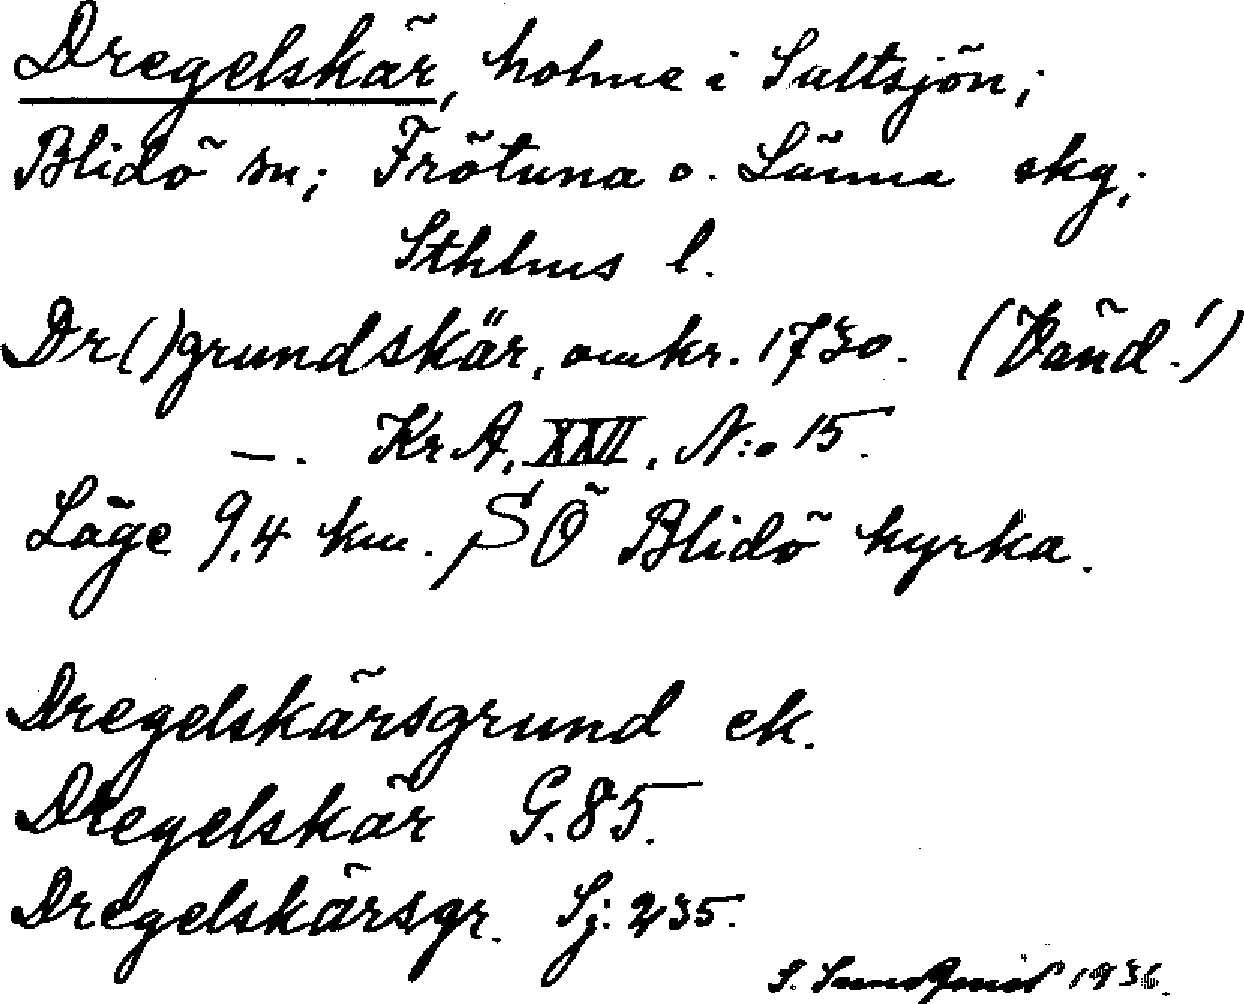 Dregelskär, holme i Saltsjön;
Blidö sn; Frötuna o. Länna skg;
Sthlms l.
Dr()grundskär, omkr. 1730. (Vänd!)
—. KrA, XXII, N:o 15.
Läge 9,4 km. SÖ Blidö kyrka.
Dregelskärsgrund ek.
Dregelskär G.85.
Dregelskärsgr. Sj: 235.
S. 1936.